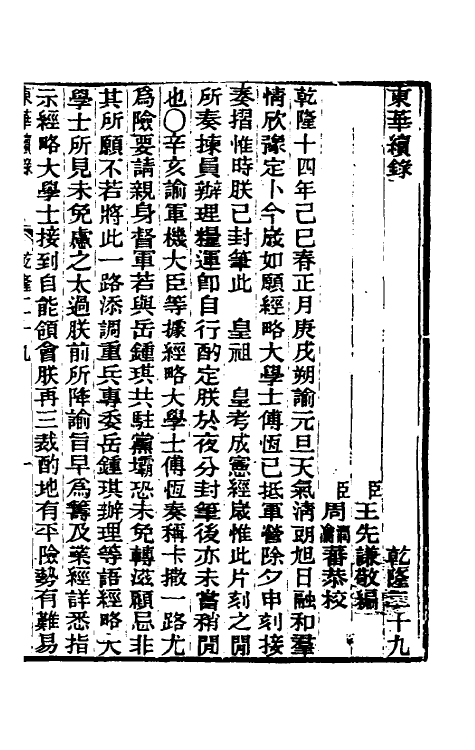 東華續錄 乾隆二十九
臣王先謙敬編
臣周潤蕃周瀹蕃恭校
乾隆十四年己巳春正月庚戌朔諭元旦天氣清朗旭日融和羣
情欣豫定卜今歲如願經略大學士傅恆已抵軍營除夕申刻接
奏摺惟時朕已封筆此 皇祖 皇考成憲經歲惟此片刻之閒
所奏揀員辦理糧運卽自行酌定朕於夜分封筆後亦未嘗稍閒
也○辛亥諭軍機大臣等據經略大學士傅恆奏稱卡撒一路尤
爲險要請親身督軍若與岳鍾琪共駐黨壩恐未免轉滋顧忌非
其所願不若將此一路添調重兵專委岳鍾琪辦理等語經略大
學士所見未免慮之太過朕前所降諭旨早爲籌及業經詳悉指
示經略大學士接到自能領會朕再三裁酌地有平險勢有難易
東華續錄 乾隆二十九 一